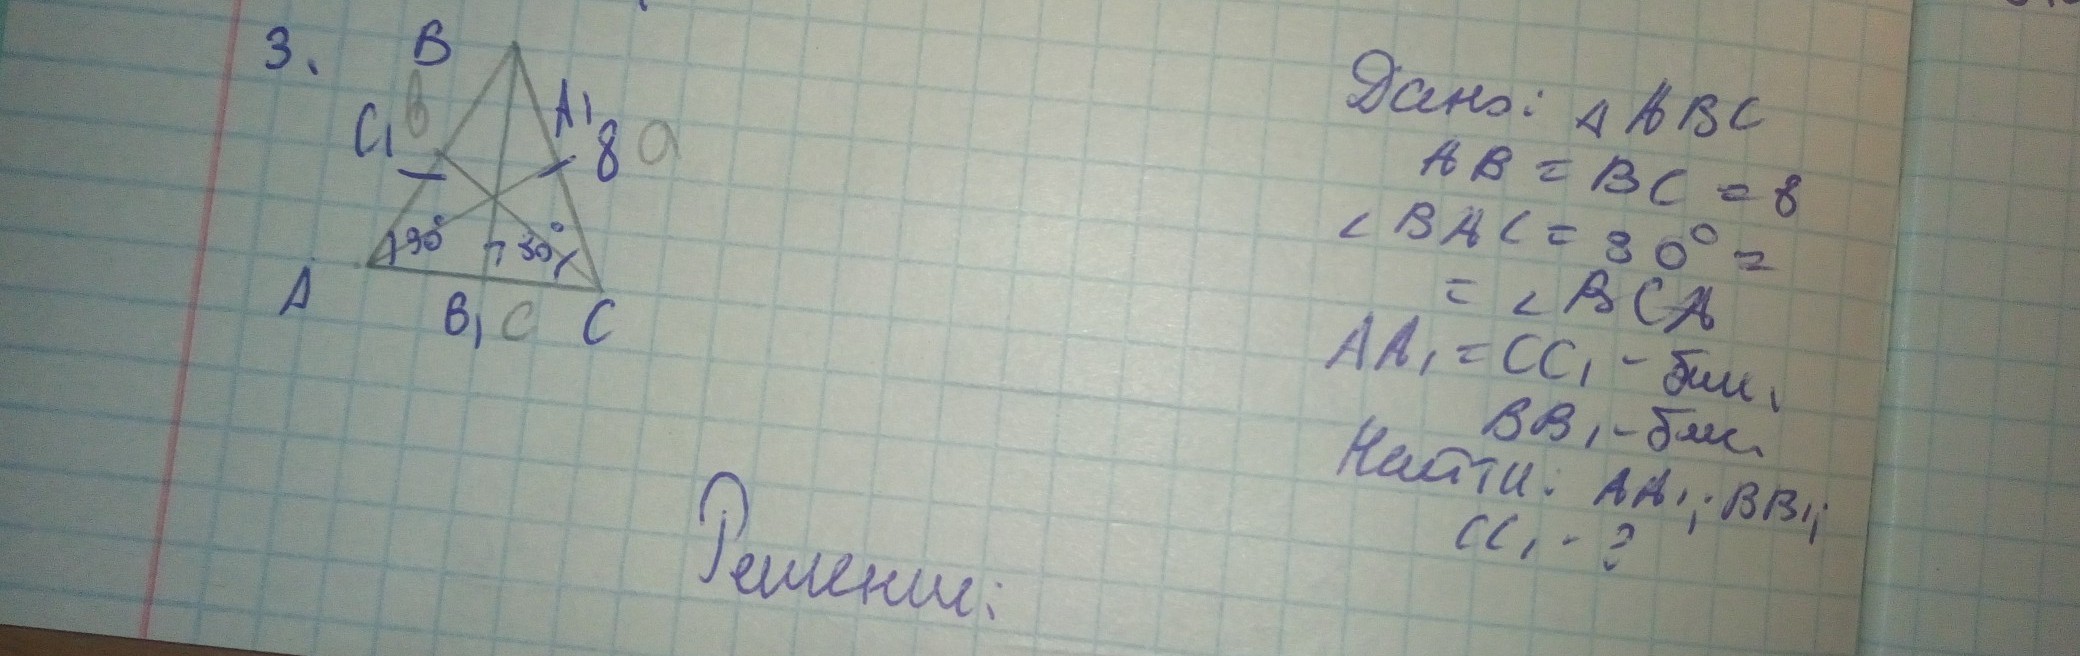 3.
B
C₁ в
A₁
8 a
30°
30°
A
B₁ c
C
Дано: △ ABC
AB = BC = 8
∠ BAC = 30° =
= ∠ BCA
AA₁ = CC₁ - бис.
BB₁ - бис.
Найти: AA₁; BB₁;
CC₁ - ?
Решение: